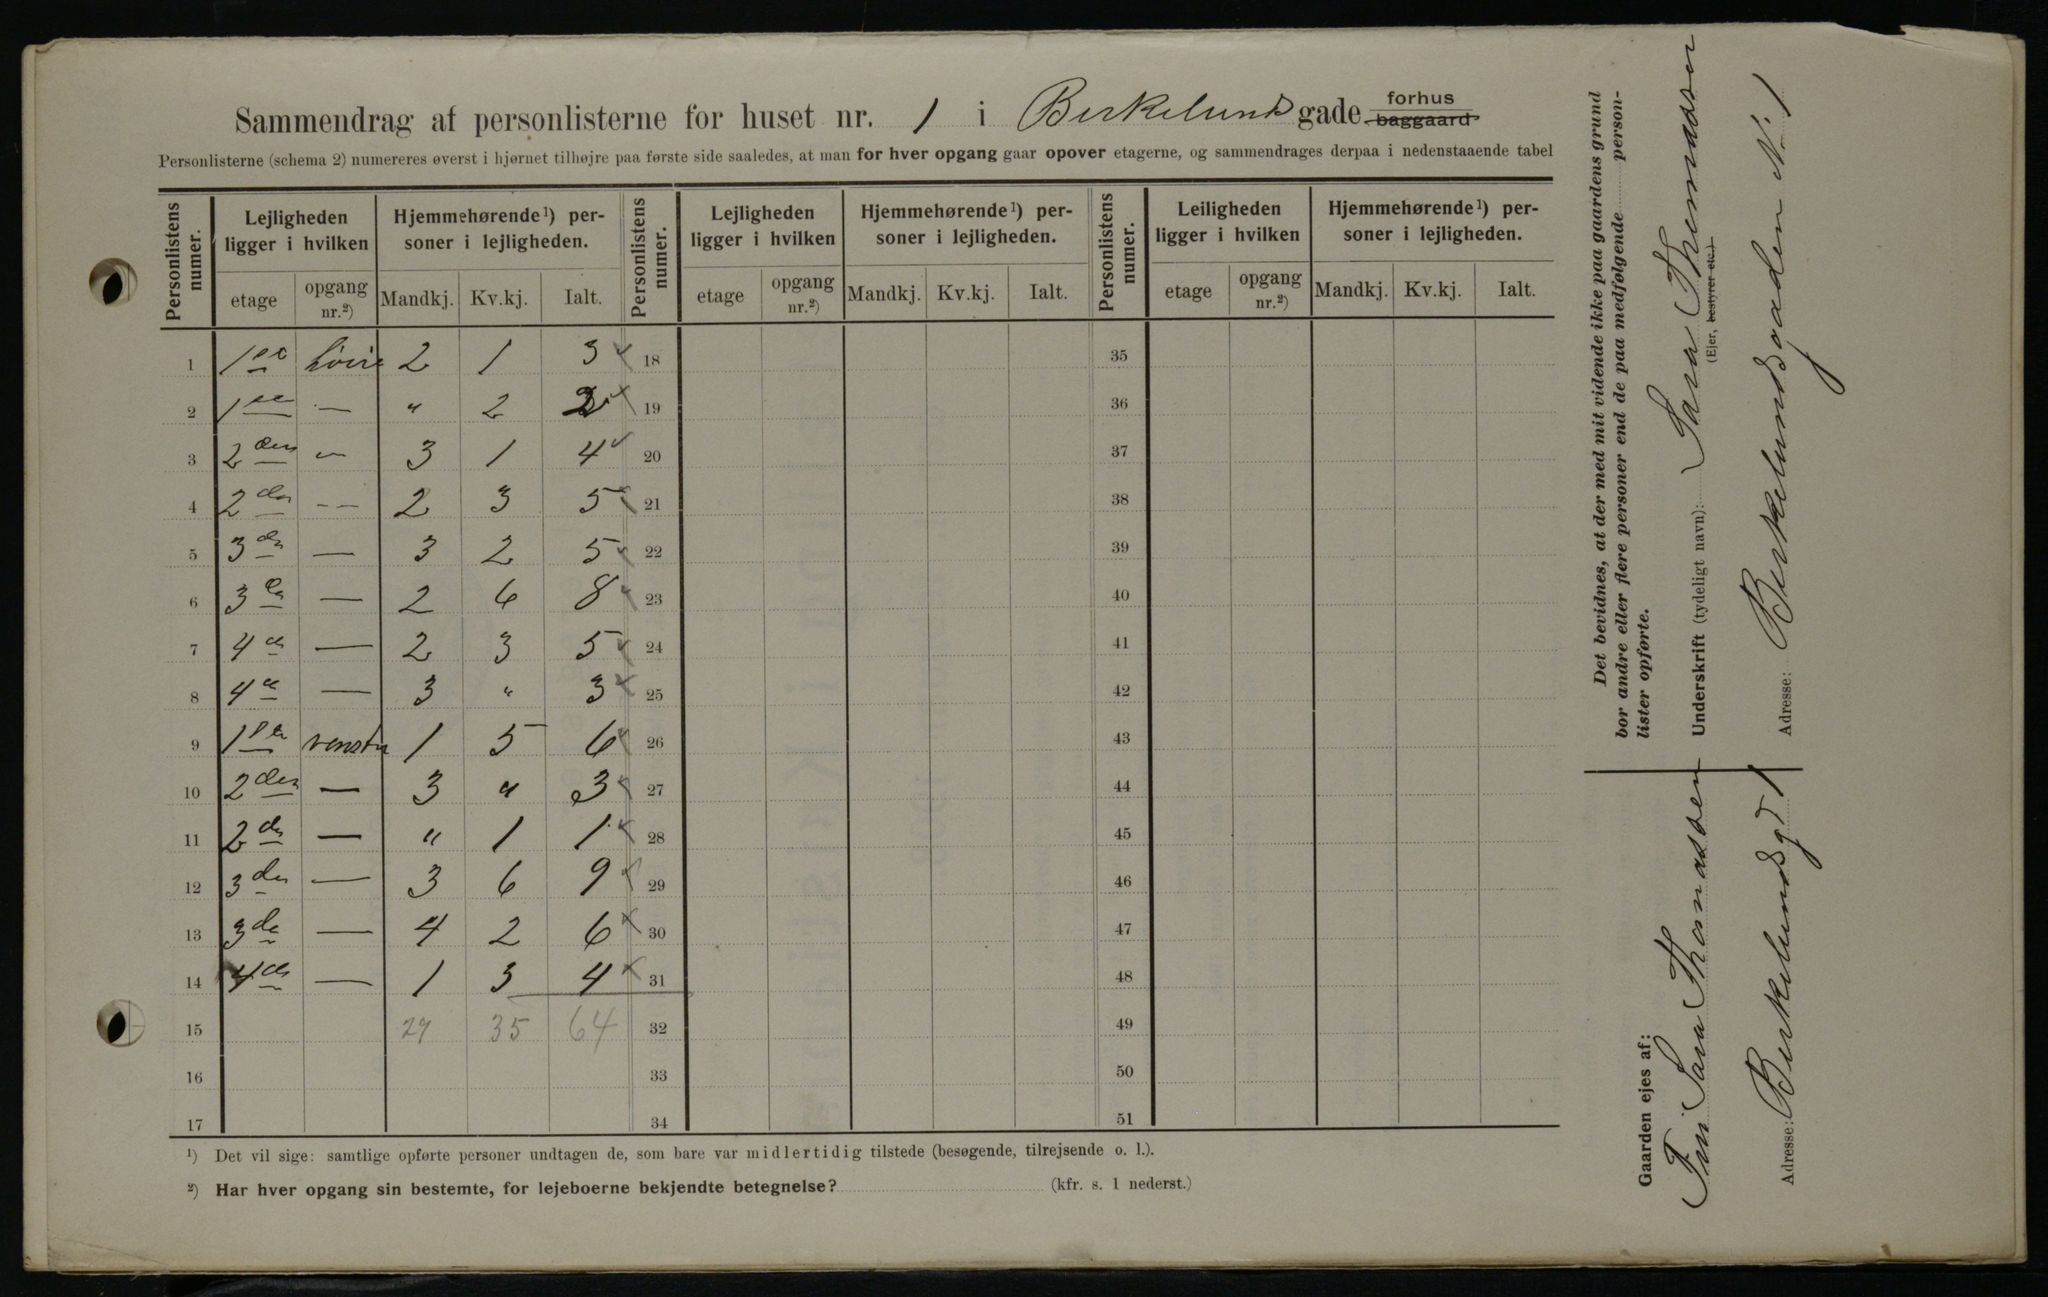 Sammendrag af personlisterne for huset nr. 1 i Birkelunds gade forhus baggaard
Personlisterne (schema 2) numereres øverst i hjørnet tilhøjre paa første side saaledes, at man for hver opgang gaar opover etagerne, og sammendrages derpaa i nedenstaaende tabel
Personlistens numer. Lejligheden ligger i hvilken Hjemmehørende ¹) personer i lejligheden. Personlistens numer. Lejligheden ligger i hvilken Hjemmehørende ¹) personer i lejligheden. Personlistens numer. Leiligheden ligger i hvilken Hjemmehørende ¹) personer i lejligheden.
etage opgang nr.²) Mandkj. Kv.kj. Ialt. etage opgang nr.²) Mandkj. Kv.kj. Ialt. etage opgang nr.²) Mandkj. Kv.kj. Ialt.
1 1ste høire 2 1 3 18 35
2 1ste — " 2 2 19 36
3 2den — 3 1 4 20 37
4 2den — 2 3 5 21 38
5 3de — 3 2 5 22 39
6 3de — 2 6 8 23 40
7 4de — 2 3 5 24 41
8 4de — 3 " 3 25 42
9 1ste venstre 1 5 6 26 43
10 2den — 3 " 3 27 44
11 2den — " 1 1 28 45
12 3die — 3 6 9 29 46
13 3de — 4 2 6 30 47
14 4de — 1 3 4 31 48
15 29 35 64 32 49
16 33 50
17 34 51
¹) Det vil sige: samtlige opførte personer undtagen de, som bare var midlertidig tilstede (besøgende, tilrejsende o. l.).
²) Har hver opgang sin bestemte, for lejeboerne bekjendte betegnelse? (kfr. s. 1 nederst.)
Det bevidnes, at der med mit vidende ikke paa gaardens grund
bor andre eller flere personer end de paa medfølgende personlister opførte.
Underskrift (tydeligt navn): Sara Thomassen
(Ejer, bestyrer etc.)
Adresse: Birkelundsgaden N. 1
Gaarden ejes af:
Fru Sara Thomassen
Adresse: Birkelundsgd 1